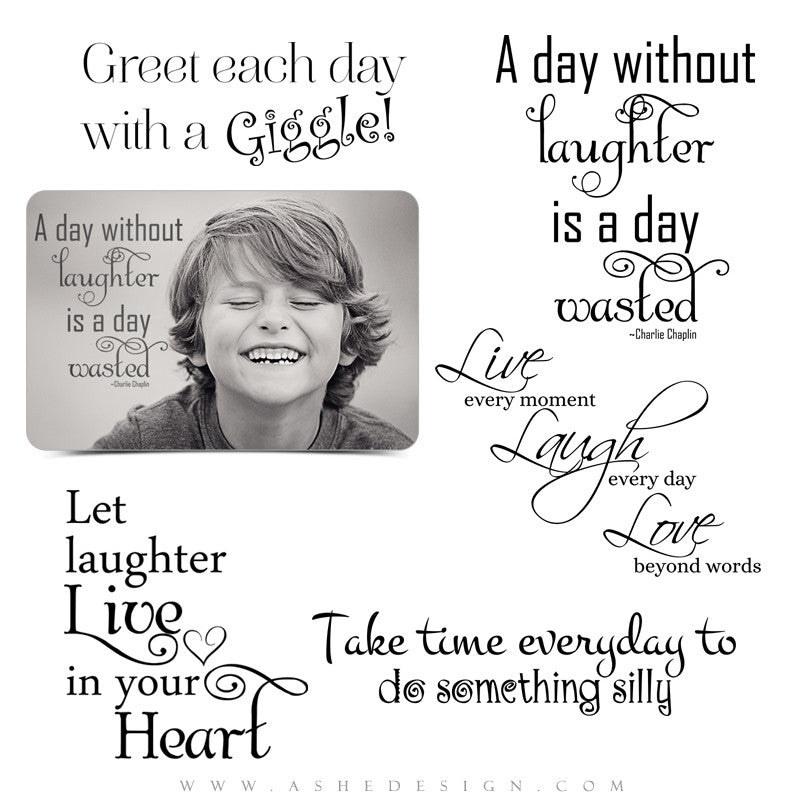 Greet each day
with a Giggle!
A day without
laughter
is a day
wasted
~Charlie Chaplin
A day without
laughter
is a day
wasted
~Charlie Chaplin
Live
every moment
Laugh
every day
Love
beyond words
Let
laughter
Live
in your
Heart
Take time everyday to
do something silly
WWW.ASHEDESIGN.COM